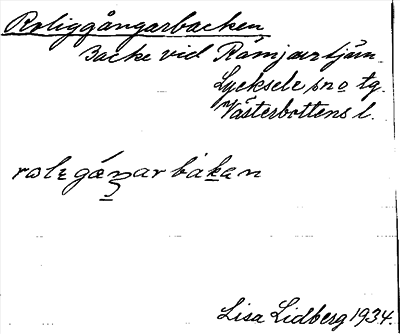 Roliggångarbacken
Backe vid Rämjärtjärn
Lycksele sn o tg.
Västerbottens l.
rolɪgáŋarbákan
Lisa Lidberg 1934.